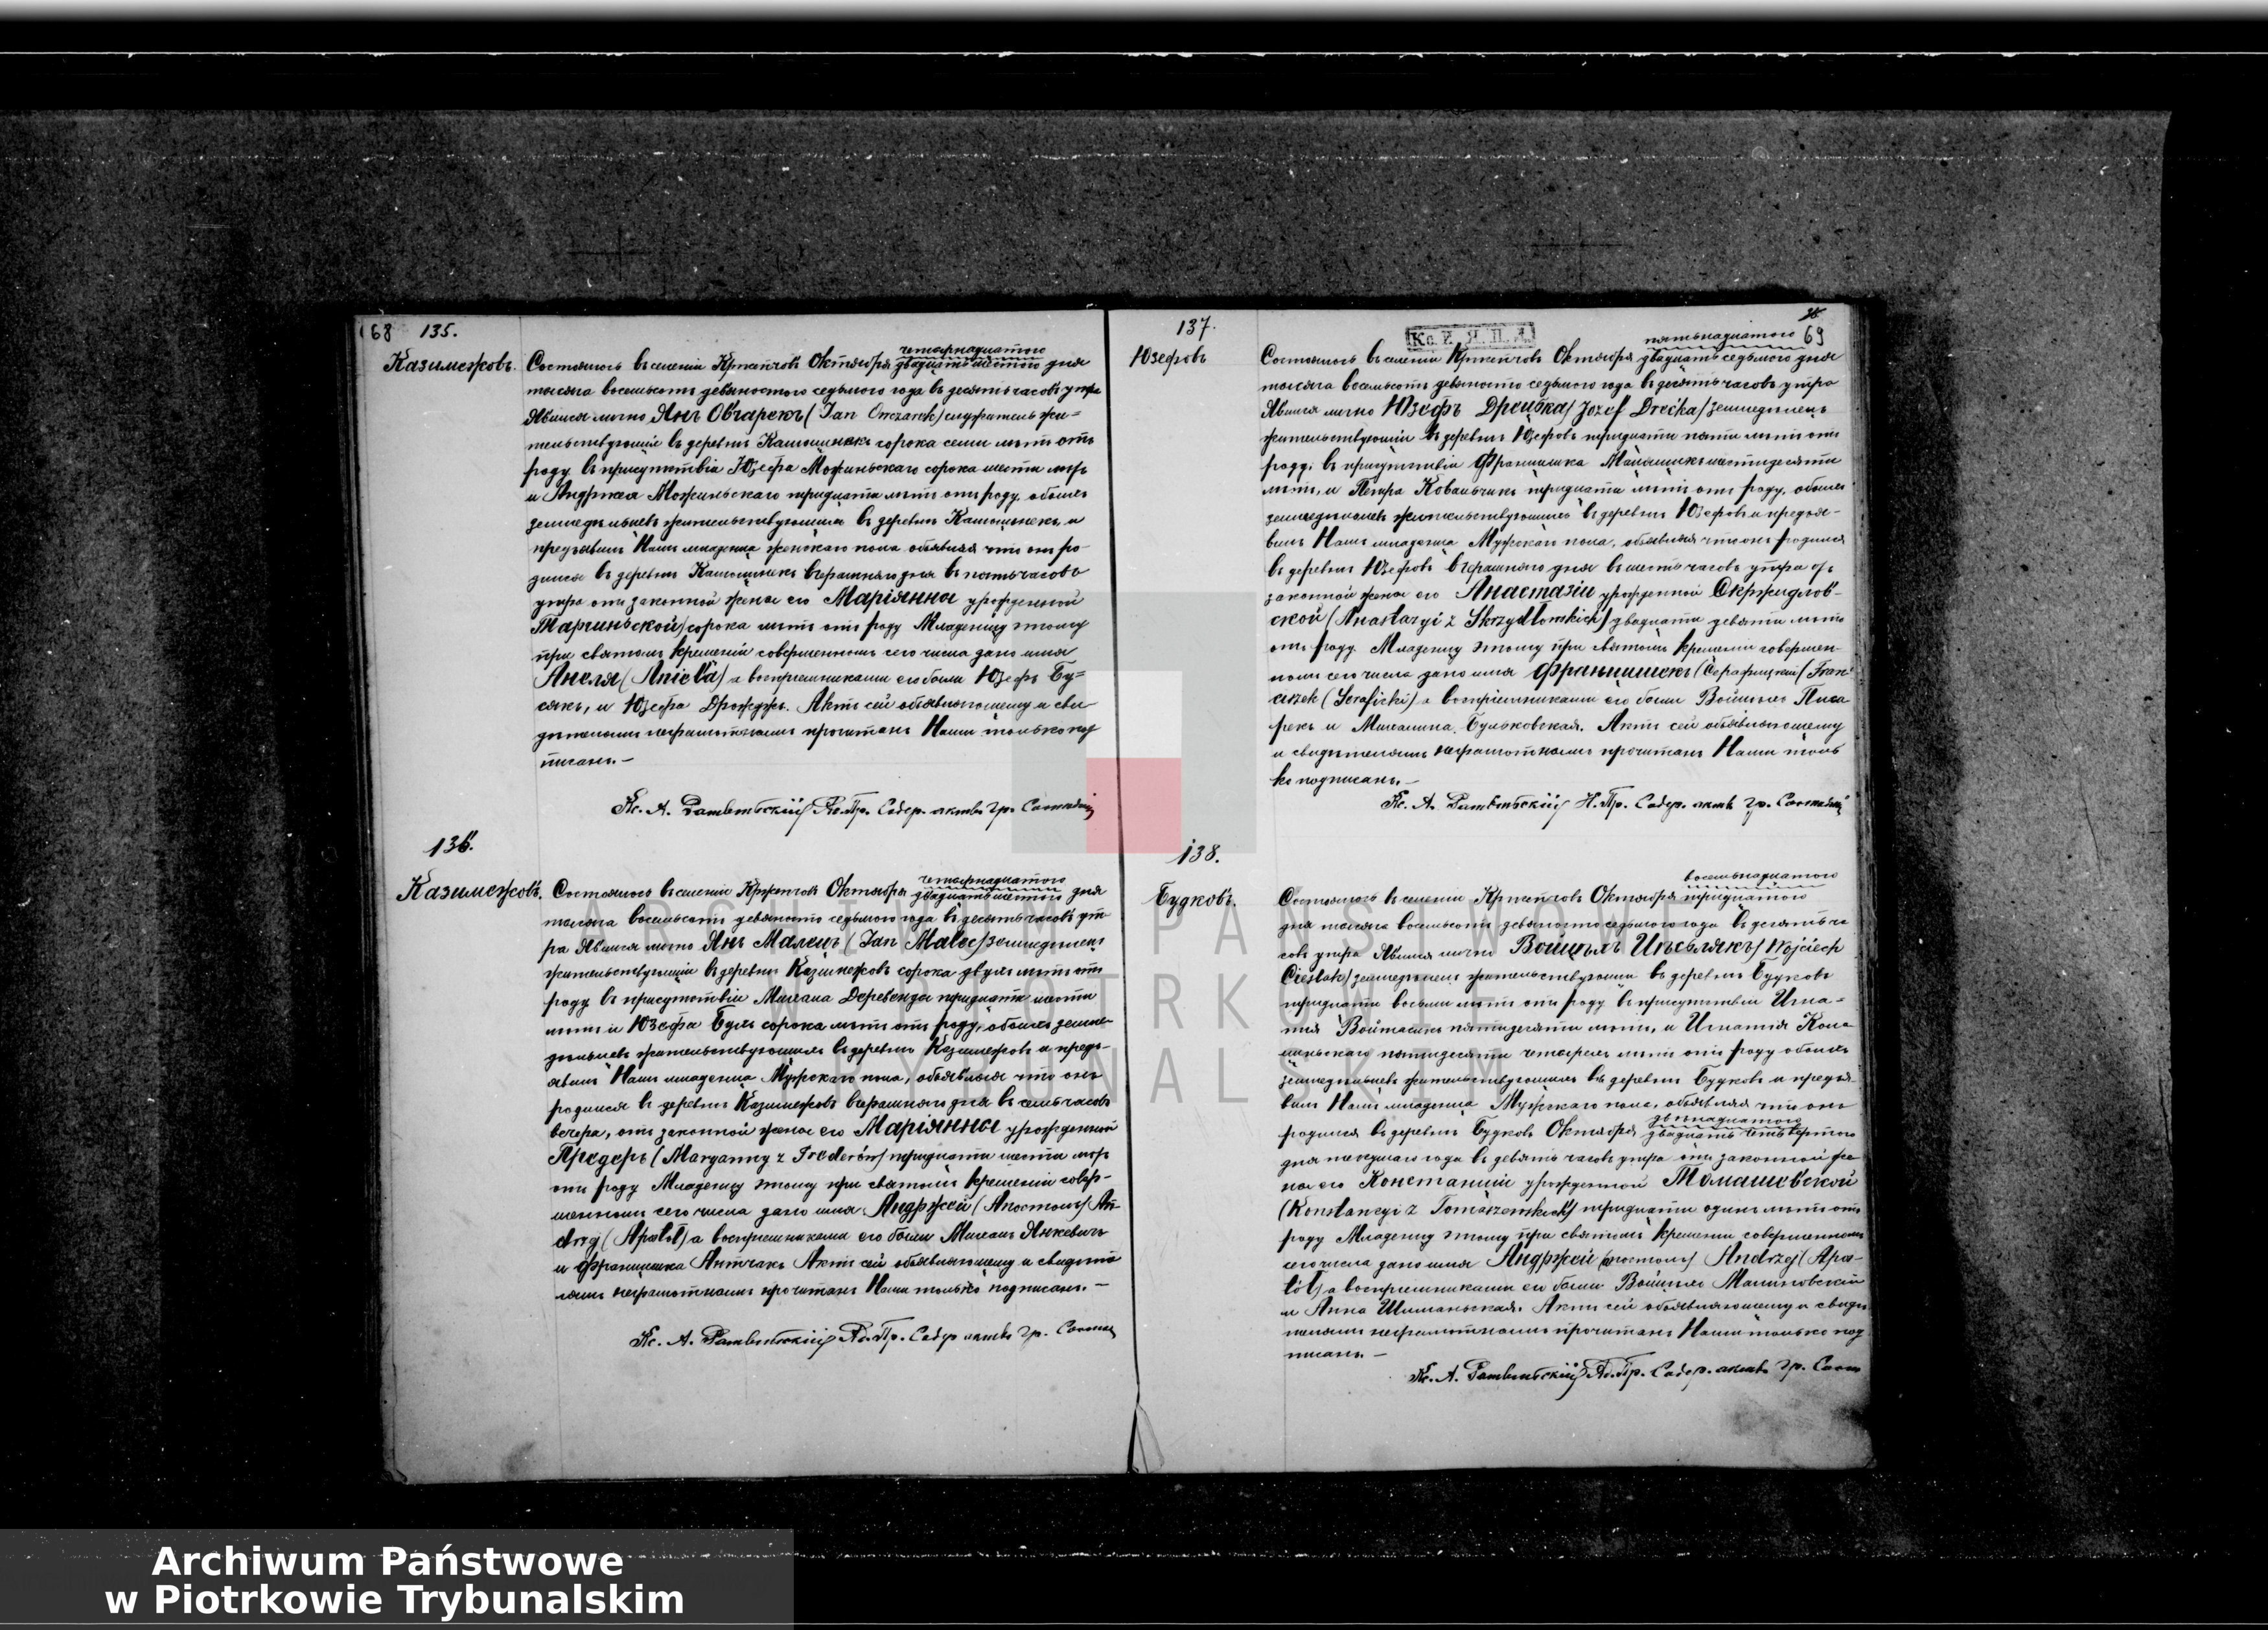 68 135.
Казимежовъ.
четырнадцатого
Состоялось въ селенiи Кржепчовъ Октября двадцать шестого дня
тысяча восемьсотъ девяностого седьмого года въ десять часовъ утра
Явился лично Янъ Овчарекъ (Jan Owczarek) служитель жи=
тельствующiй въ деревнѣ сорока семи лѣтъ отъ
роду въ присутствiи Юзефа сорока шести лѣтъ
и Андржея тридцати лѣтъ отъ роду, обоихъ
земледѣльцевъ жительствующихъ въ деревнѣ и
предъявилъ Намъ младенца женскаго пола объявляя что онъ ро-
дился въ деревнѣ вчерашняго дня въ пять часовъ
утра отъ законной жены его Марiянны урожденной
сорока лѣтъ отъ роду Младенцу этому
при святомъ крещенiи совершенномъ сего числа дано имя
Анеля (Aniela) а воспрiемниками его были Юзефъ Бу=
сякъ, и Юзефа Дрожджъ. Актъ сей объявляющему и сви-
дѣтелямъ неграмотнымъ прочитанъ Нами только под
писанъ. –
Кс. А. Содер. актовъ гр. Состоянiя
136.
Казимежовъ.
четырнадцатого
Состоялось въ селенiи Кржепчовъ Октября двадцать шестого дня
тысяча восемьсотъ девяносто седьмого года въ десять часовъ ут
ра Явился лично Янъ Малецъ (Jan Malec) земледѣлецъ
жительствующiй въ деревнѣ Казимежовъ сорока двухъ лѣтъ отъ
роду въ присутствiи Михала Деревенды тридцати шести
лѣтъ и Юзефа Буля сорока лѣтъ отъ роду, обоихъ земле-
дѣльцевъ жительствующихъ въ деревнѣ Казимежовъ и предъ-
явилъ Намъ младенца Мужскаго пола, объявляя что онъ
родился въ деревнѣ Казимежовъ вчерашняго дня въ семь часовъ
вечера, отъ законной жены его Марiянны урожденной
(Maryanny z тридцати шести лѣтъ
отъ роду Младенцу этому при святомъ крещенiи совер-
шенномъ сего числа дано имя Андржей (Апостолъ) An-
drzej (Apostoł) а воспрiемниками его были Михалъ Янкевичъ
и Францишка Антчакъ Актъ сей объявляющему и свидѣте
лямъ неграмотнымъ прочитанъ Нами только подписанъ. –
Кс. А. Содер актовъ гр. Состоя
137.
Юзефовъ
Ко. И. Я. П. А.
69
пятьнадцатого
Состоялось въ селенiи Кржепчовъ Октября двадцать седьмого дня
тысяча восемьсотъ девяносто седьмого года въ десять часовъ утра
Явился лично Юзефъ (Jozef земледѣлецъ
жительствующiй въ деревнѣ Юзефовъ тридцати пяти лѣтъ отъ
роду, въ присутствiи Францишка шестидесяти
лѣтъ, и Петра Ковальчикъ тридцати лѣтъ отъ роду, обоихъ
земледѣльцевъ жительствующихъ въ деревнѣ Юзефовъ и предъя-
вилъ Намъ младенца Мужскаго пола, объявляя что онъ родился
въ деревнѣ Юзефовъ вчерашняго дня въ шесть часовъ утра отъ
законной жены его Анастазiи урожденной Скржидлов-
ской (Anastazyi z Skrzydłowskich) двадцати девяти лѣтъ
отъ роду. Младенцу этому при святомъ крещенiи совершен-
номъ сего числа дано имя Францишекъ (Серафицкiй) Fran-
ciszek (Seraficki) а воспрiемниками его были Войцѣхъ Писа
рекъ и Михалина Бульковская. Актъ сей объявляющему
и свидѣтелямъ неграмотнымъ прочитанъ Нами толь
ко подписанъ. –
Кс. А. Содер. актовъ гр. Состоянiя
138.
Будковъ.
восемьнадцатого
Состоялось въ селенiи Кржепчовъ Октября тридцатого
дня тысяча восемьсотъ девяносто седьмого года въ десять ча
совъ утра Явился лично Войцѣхъ Цѣслякъ (Wojciech
Cieślak) земледѣлецъ жительствующiй въ деревнѣ Будковъ
тридцати восьми лѣтъ отъ роду въ присутствiи Игна=
тiя Войтасикъ пятидесяти лѣтъ, и Игнатiя Кона
пятидесяти четырехъ лѣтъ отъ роду обоихъ
земледѣльцевъ жительствующихъ въ деревнѣ Будковъ и предъя-
вилъ Намъ младенца Мужскаго пола, объявляя что онъ
двѣнадцатого
родился въ деревнѣ Будковъ Октября двадцать четвертого
дня текущаго года въ девять часовъ утра отъ законной же
ны его Констанцiи урожденной Томашевской
(Konstancyi z Tomaszewskich) тридцати одинъ лѣтъ отъ
роду Младенцу этому при святомъ крещенiи совершенномъ
сего числа дано имя Андржей (Апостолъ) Andrzej (Apo-
stoł) а воспрiемниками его были Войцѣхъ Малиновскiй
и Анна Шиманьская. Актъ сей объявляющему и свидѣ
телямъ неграмотнымъ прочитанъ Нами только под
писанъ. –
Кс. А. Содер. актовъ гр. Состо
ARCHIWUM PAŃSTWOWE
W PIOTRKOWIE
TRYBUNALSKIM
Archiwum Państwowe
w Piotrkowie Trybunalskim